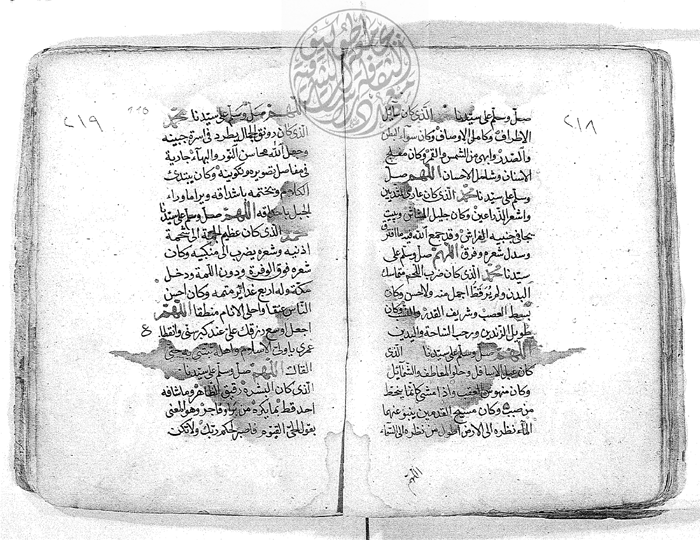 ٢١٨
صل وسلم على سيدنا محمد الذي كان سائل
الاطراف وكامل الاوصاف وكان سواء البطن
والصدر وابهى من الشمس والقمر وكان مفلج
الاسنان وشامل الاحسان اللهم صل
وسلم على سيدنا محمد الذي كان عاري الثديين
واشعر الذراعين وكان جليل المشاش ويبيت
يجافي جنبيه الفراش وقد جمع الله فيه ما افترق
وسدل شعره وفرق اللهم صل وسلم على
سيدنا محمد الذي كان ضرب اللحم متماسك
البدن ولم ير قط اجمل منه ولا احسن وكان
بسيط العصب وشريف القدر والنسب وكان
طويل الزندين ورحب الراحة واليدين
اللهم صل وسلم على سيدنا الذي
كان الاسافل وحلو المعاطف والشمائل
وكان منهوس العقب واذا مشى كانما ينحط
من صبب وكان مسيح القدمين ينبو عنهما
الماء نظره الى الارض اطول من نظره الى السماء
اللهم
٢١٩
اللهم صل وسلم على سيدنا محمد
الذي كان رونق الجمال يطرد في اسرة جبينه
وجعل الله محاسن النور والبهاء جارية
في مفاصل تصويره وتكوينه وكان يبتدئ
الكلام ويختمه باشداقه وبرا ما وراء
الجبل اللهم صل وسلم على سيدنا
محمد الذي كان عظيم الجمة الى شحمة
اذنيه وشعره يضرب الى منكبيه وكان
شعره فوق الوفرة ودون اللمة ودخل
مكة وله اربع غدائر متمه وكان احسن
الناس عنقا واحلى الانام منطقا اللهم
اجعل اوسع رزقك علي عند كبر سني وانقطا
عمري يا ولي الاسلام واهله ثبتني به حتى
القاك اللهم صل وسلم على سيدنا
الذي كان البشرة رقيق الظاهر وما شافه
احد قط بما يكره من بر او فاجر وهو المعنى
بقول الحي القيوم فاصبر لحكم ربك ولا تكن